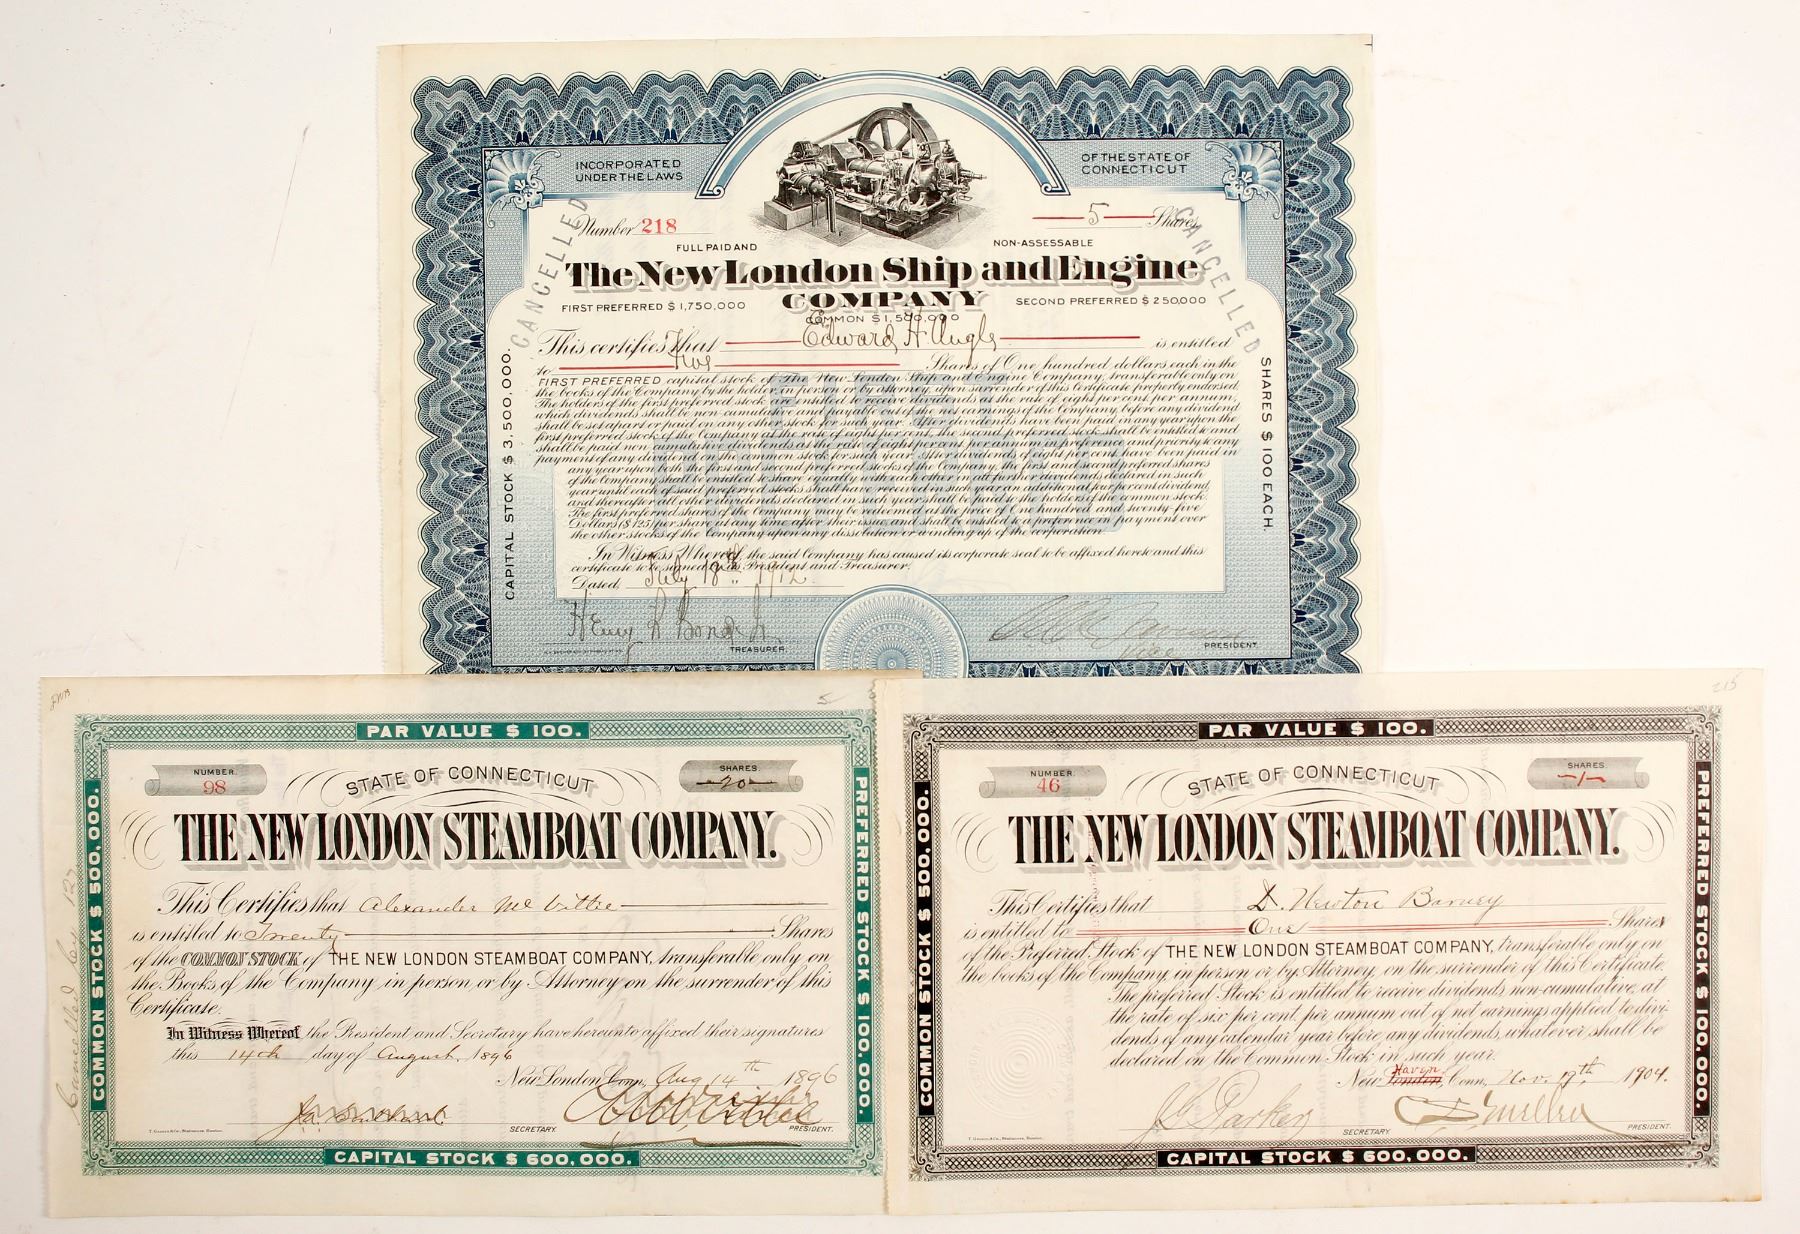 INCORPORATED
UNDER THE LAWS
OF THE STATE OF
CONNECTICUT
Number 218
5 Shares
FULL PAID AND NON-ASSESSABLE
CANCELLED
CANCELLED
The New London Ship and Engine
COMPANY
FIRST PREFERRED $1,750,000
SECOND PREFERRED $250,000
COMMON $1,500,000
This certifies that Edward H is entitled
to Five Shares of One hundred dollars each in the
FIRST PREFERRED capital stock of The New London Ship and Engine Company, transferable only on
the books of the Company by the holder, in person or by attorney, upon surrender of this Certificate properly endorsed.
The holders of the first preferred stock are entitled to receive dividends at the rate of eight per cent per annum,
which dividends shall be non-cumulative and payable out of the net earnings of the Company, before any dividend
shall be set apart or paid on any other stock for such year. After dividends have been paid in any year upon the
first preferred stock of the Company at the rate of eight per cent, the second preferred stock shall be entitled to and
shall be paid non cumulative dividends at the rate of eight per cent per annum in preference and priority to any
payment of any dividend on the common stock for such year. After dividends of eight per cent have been paid in
any year upon both the first and second preferred stocks of the Company, the first and second preferred shares
of the Company shall be entitled to share equally with each other in all further dividends declared in such
year until each of said preferred stocks shall have received in such year an additional four per cent dividend,
and thereafter all other dividends declared in such year shall be paid to the holders of the common stock.
The first preferred shares of the Company may be redeemed at the price of One hundred and twenty-five
Dollars ($125) per share at any time after their issue, and shall be entitled to a preference in payment over
the other stocks of the Company upon any dissolution or winding up of the corporation.
In Witness Whereof, the said Company has caused its corporate seal to be affixed hereto and this
certificate to be signed by its President and Treasurer.
Dated, July 18th 1912.
Henry R Bond Jr
TREASURER.
Vice PRESIDENT.
CAPITAL STOCK $3,500,000.
SHARES $100 EACH.
PAR VALUE $100.
NUMBER.
98
STATE OF CONNECTICUT
SHARES.
20
THE NEW LONDON STEAMBOAT COMPANY.
This Certifies that Alexander McVittie
is entitled to Twenty Shares
of the COMMON STOCK of THE NEW LONDON STEAMBOAT COMPANY, transferable only on
the Books of the Company in person or by Attorney on the surrender of this
Certificate.
In Witness Whereof the President and Secretary have hereunto affixed their signatures
this 14th day of August, 1896
New London Conn, Aug 14th 1896
SECRETARY.
PRESIDENT.
COMMON STOCK $500,000.
PREFERRED STOCK $100,000.
CAPITAL STOCK $600,000.
Cancelled by 127
PAR VALUE $100.
215
NUMBER.
46
STATE OF CONNECTICUT
SHARES.
1
THE NEW LONDON STEAMBOAT COMPANY.
This Certifies that D. Newton Barney
is entitled to One Shares
of the Preferred Stock of THE NEW LONDON STEAMBOAT COMPANY, transferable only on
the books of the Company, in person or by Attorney, on the surrender of this Certificate.
The preferred Stock is entitled to receive dividends non-cumulative, at
the rate of six per cent, per annum out of net earnings applied to divi-
dends of any calendar year before any dividends, whatever, shall be
declared on the Common Stock in such year.
New London Haven, Conn, Nov. 19th 1904.
J G Parker
SECRETARY.
C S Mellen
PRESIDENT.
COMMON STOCK $500,000.
PREFERRED STOCK $100,000.
CAPITAL STOCK $600,000.